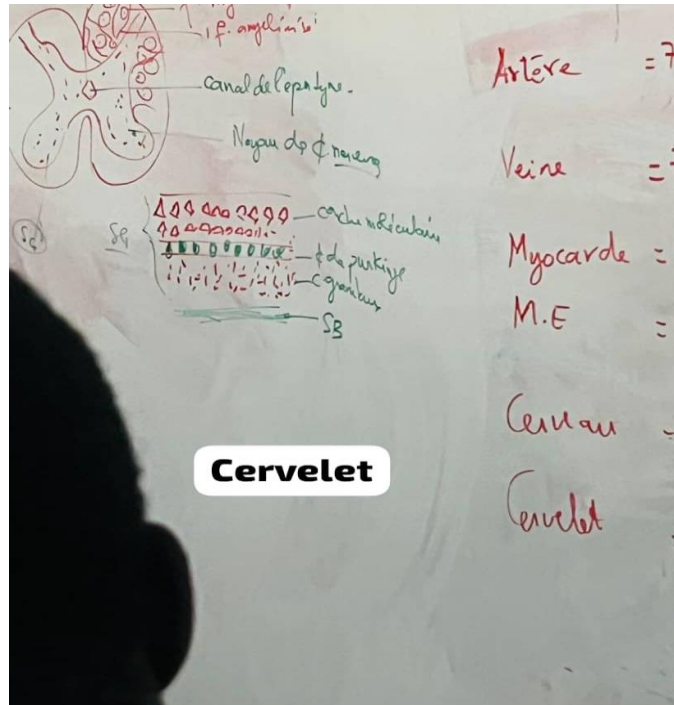 f. amyélinisé
canal de l'épendyme.
Noyau de ¢ nerveuse
SG
SG
couche moléculaire
¢ de purkinje
C granuleuse
SB
Cervelet
Artère = 7
Veine =
Myocarde =
M.E =
Cerveau
Cervelet